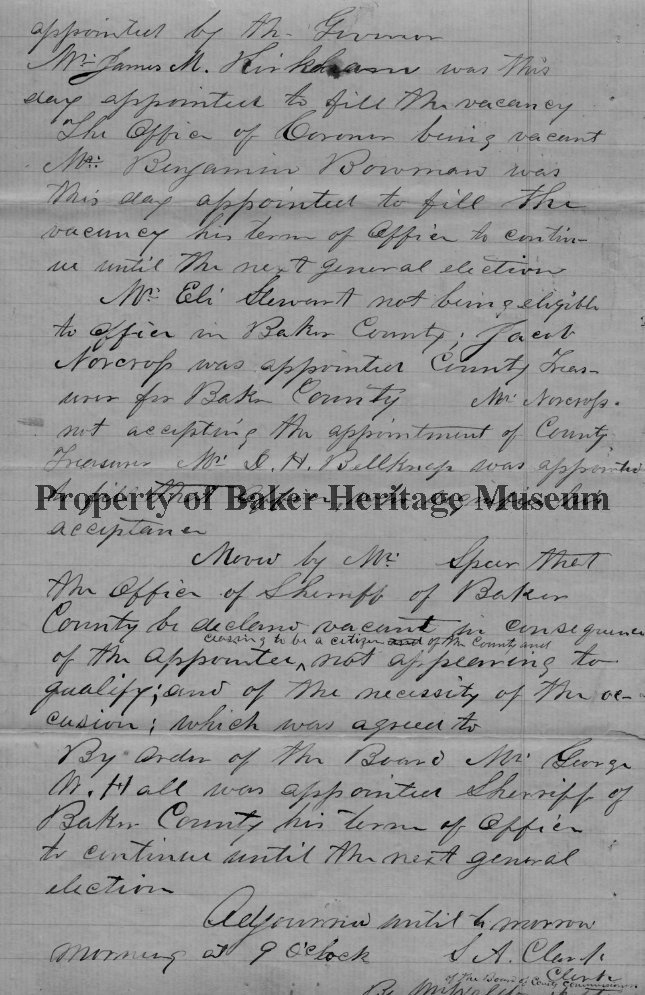 appointed by the Governor
Mr. James M. Kirkham was this
day appointed to fill the vacancy
The Office of Coroner being vacant
Mr. Benjamin Bowman was
this day appointed to fill the
vacancy his term of Office to contin-
ue until the next general election
Mr. Eli Stewart not being eligible
to Office in Baker County; Jacob
Norcross was appointed County Treas-
urer for Baker County Mr. Norcross
not accepting the appointment of County
Treasurer Mr. D. H. Bellknap was appointed
Property of Baker Heritage Museum
acceptance
Moved by Mr. Speer that
the Office of Sherriff of Baker
County be declared vacant in consequence
ceasing to be a citizen and of the County and
of the appointee not appearing to
qualify; and of the necessity of the oc-
casion; which was agreed to
By order of the Board Mr. George
W. Hall was appointed Sherriff of
Baker County his term of Office
to continue until the next general
election
Adjourned until to morrow
morning at 9 O'clock S. A. Clark
Clerk
of the Board of County Commissioners
By